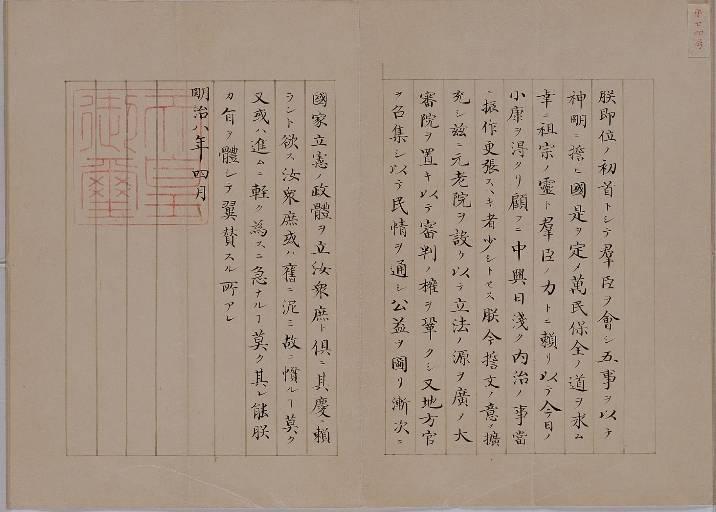 朕即位ノ初首トシテ羣臣ヲ會シ五事ヲ以テ
神明ニ誓ヒ國是ヲ定メ萬民保全ノ道ヲ求ム
幸ニ祖宗ノ靈ト羣臣ノ力トニ賴リ以テ今日ノ
小康ヲ得タリ顧フニ中興日淺ク内治ノ事當
ニ振作更張スヘキ者少シトセス朕今誓文ノ意ヲ擴
充シ茲ニ元老院ヲ設ケ以テ立法ノ源ヲ廣メ大
審院ヲ置キ以テ審判ノ權ヲ鞏クシ又地方官
ヲ召集シ以テ民情ヲ通シ公益ヲ圖リ漸次ニ
國家立憲ノ政體ヲ立汝衆庶ト俱ニ其慶ニ賴
ラント欲ス汝衆庶或ハ舊ニ泥ミ故ニ慣ルヿ莫ク
又或ハ進ムニ輕ク為スニ急ナルヿ莫ク其レ能朕
カ旨ヲ體シテ翼賛スル所アレ
明治八年四月
天皇
御璽